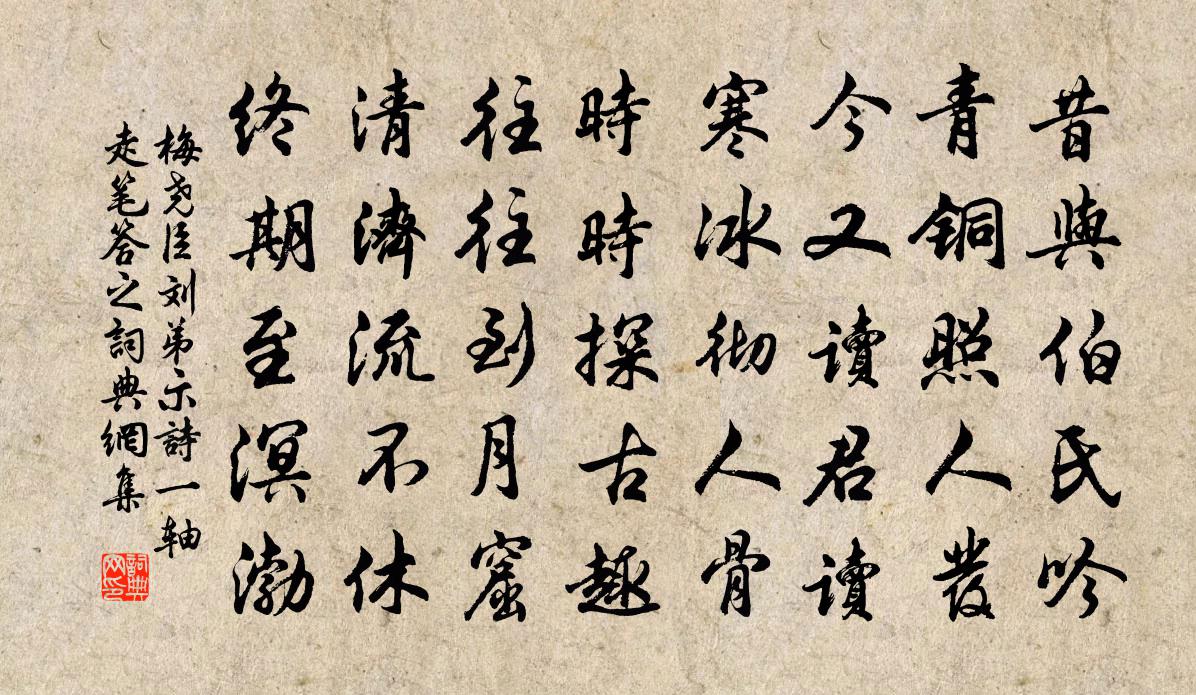 昔與伯氏吟
青銅照人發
今又讀君讀
寒冰彻人骨
時時探古趣
往往到月窟
清濟流不休
终期至溟渤
梅尧臣刘弟示詩一轴
走笔答之詞典網集
詞典網印